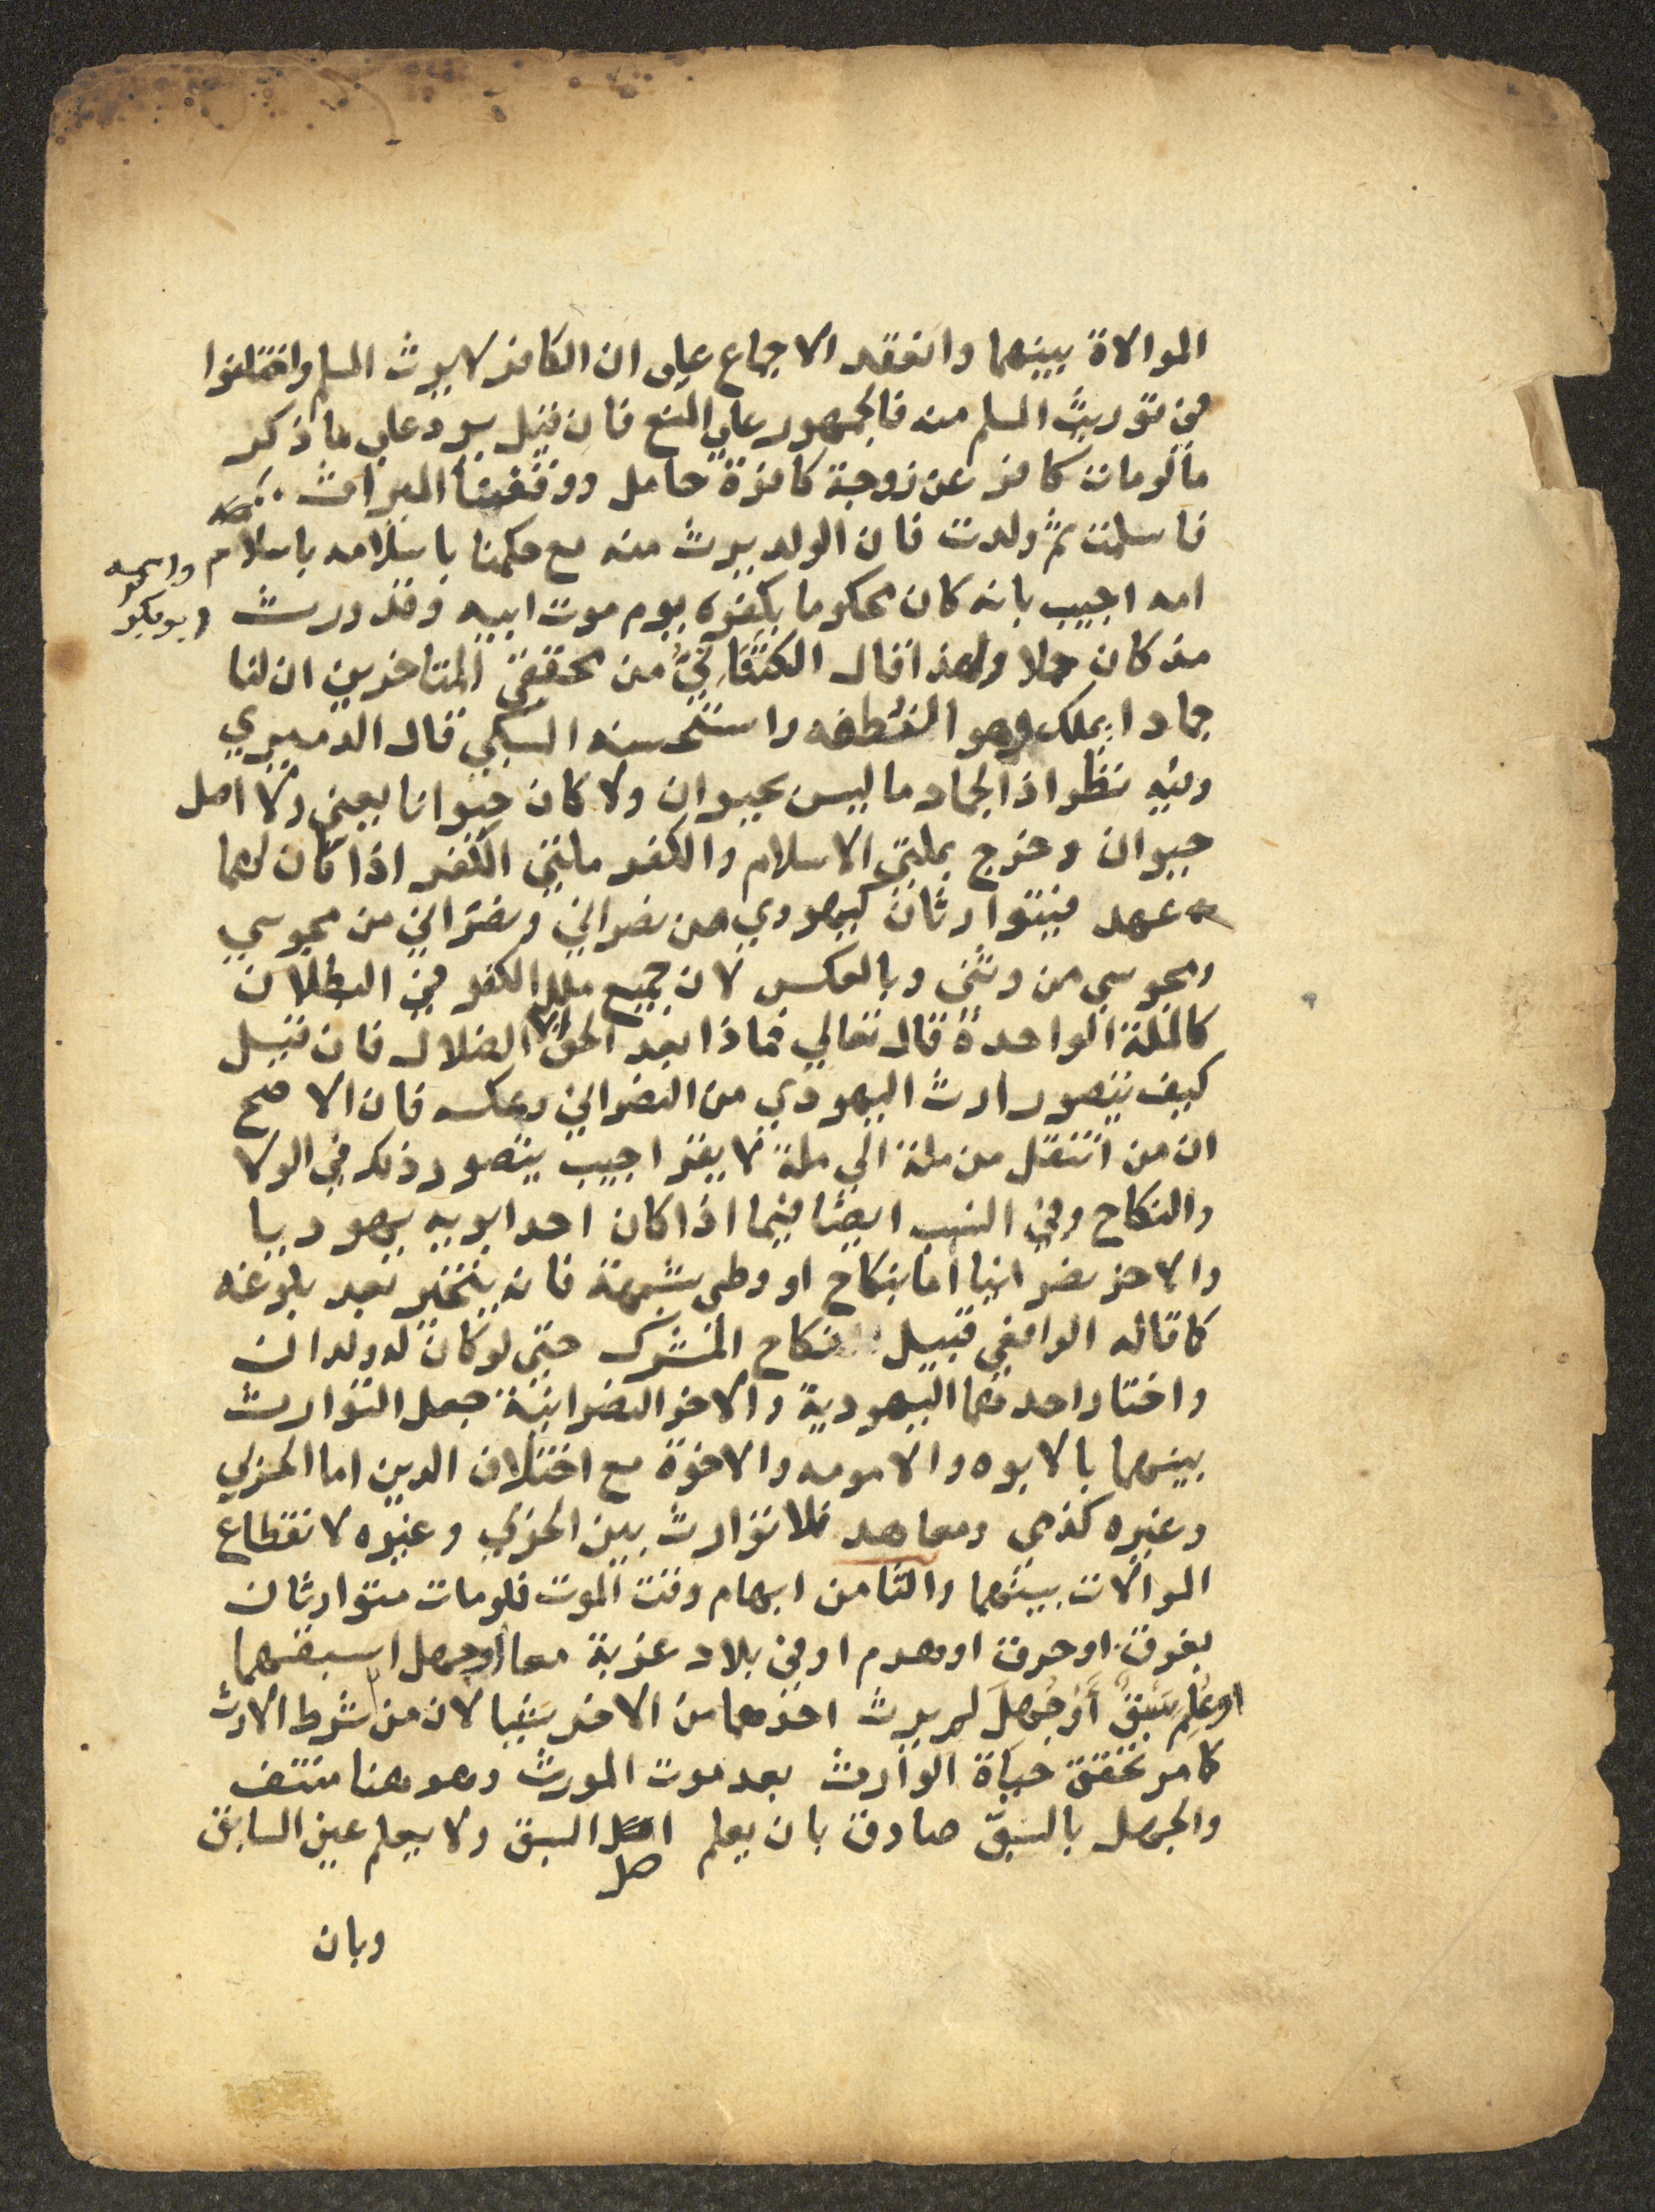 الموالاة بينهما وانعقد الاجماع على ان الكافر لا يرث المسلم واختلفوا
في توريث المسلم منه فالجمهور على المنع فان قيل يرد على ما ذكر
مالومات كافر عن زوجة كافرة حامل ووقفنا الميراث
فاسلمت ثم ولدت فان الولد يرث منه مع حكمنا باسلامه باسلام
امه اجيب بانه كان محكوما بكفره يوم موت ابيه وقد ورث
مذ كان حملا ولهذا قال الكتناني من محققي المتاخرين ان لنا
جمادا يملك وهو النطفه واستحسنه السبكي قال الدميري
وفيه نظر اذ الجماد ما ليس بحيوان ولا كان حيوانا يعني ولا اصل
حيوان وخرج بملتي الاسلام والكفر ملتي الكفر اذا كان لهما
عهد فيتوارثان كيهودي من نصراني ونصراني من مجوسي
ومجوسي من وثني وبالعكس لان جميع ملل الكفر في البطلان
كالملة الواحدة قال تعالي فماذا بعد الحق الا الضلال فان قيل
كيف يتصور ارث اليهودي من النصراني وعكسه فان الاصح
ان من انتقل من ملة الي ملة لا يقر اجيب يتصور ذلك في الولا
والنكاح وفي النسب ايضا فيما اذا كان احد ابويه يهوديا
والاخر نصرانيا اما بنكاح او وطى بشبهة فانه يتخير بعد بلوغه
كما قاله الرافعي قبيل نكاح المشرك حتى لو كان له ولدان
واختار احدهما اليهودية والاخر النصرانية جعل التوارث
بينهما بالابوه والامومه والاخوة مع اختلاف الدين اما الحربي
وغيره كذمي ومعاهد فلا توارث بين الحربي وغيره لانقطاع
الموالات بينهما والثامن ابهام وقت الموت فلومات متوارثان
بغرق او حرق او هدم او في بلاد غربة معا او جهل اسبقهما
او علم سبق او جهل لم يرث احدهما من الاخر شيا لان من شرط الارث
كما مر تحقق حياة الوارث بعد موت المورث وهو هنا منتف
والجهل بالسبق صادق بان يعلم اصل السبق ولا يعلم عين السابق
وبان